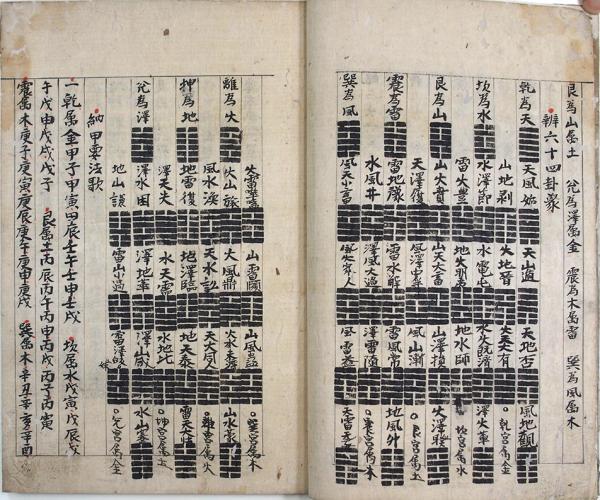 艮為山属土 兌為澤属金 震為木属雷 巽為風属木
辨六十四卦象
乾為天 天風姤 天山遁 天地否 風地觀
山地剥 火地晉 火天大有 乾宮属金
坎為水 水澤節 水雷屯 水火既濟 澤火革
雷火豊 地火明夷 地水師 坎宮属水
艮為山 山火賁 山天大畜 山澤損 火澤睽
天澤履 風澤中孚 風山漸 艮宮属土
震為雷 雷地豫 雷水解 雷風常 地風升
水風井 澤風大過 澤雷随 震宮属木
巽為風 風天小畜 風火家人 風雷益 天雷无妄
火雷噬嗑 山雷頤 山風蠱 巽宮属木
離為火 火山旅 火風鼎 火水未濟 山水蒙
風水渙 天水訟 天火同人 離宮属火
坤為地 地雷復 地澤臨 地天泰 雷天大壮
澤天夬 水天需 水地比 坤宮属土
兌為澤 澤水困 澤地萃 澤山咸 水山蹇
地山謙 雷山小過 雷澤歸妹 兌宮属金
納甲要法歌
一乾属金甲子甲寅甲辰壬午壬申壬戌 坎属水戊寅戊辰戊
午戊申戊戌戊子 艮属土丙辰丙午丙申丙戌丙子丙寅
震属木庚子庚寅庚辰庚午庚申庚戌 巽属木辛丑辛亥辛酉